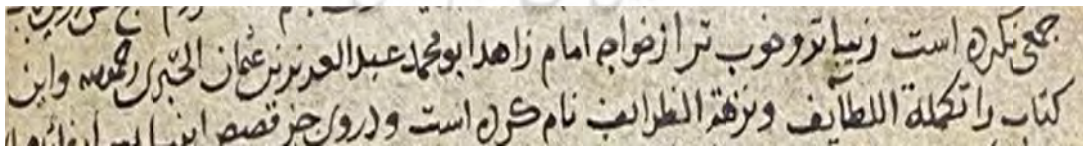 جمعی نکرده است زیباتر و خوب تر از خواجه امام زاهد ابومحمد عبدالعزیز بن عثمان الحیری رحمه الله و این
کتاب را تکملة اللطایف و نزهة الظرایف نام کرده است و در وی جز قصص انبیا